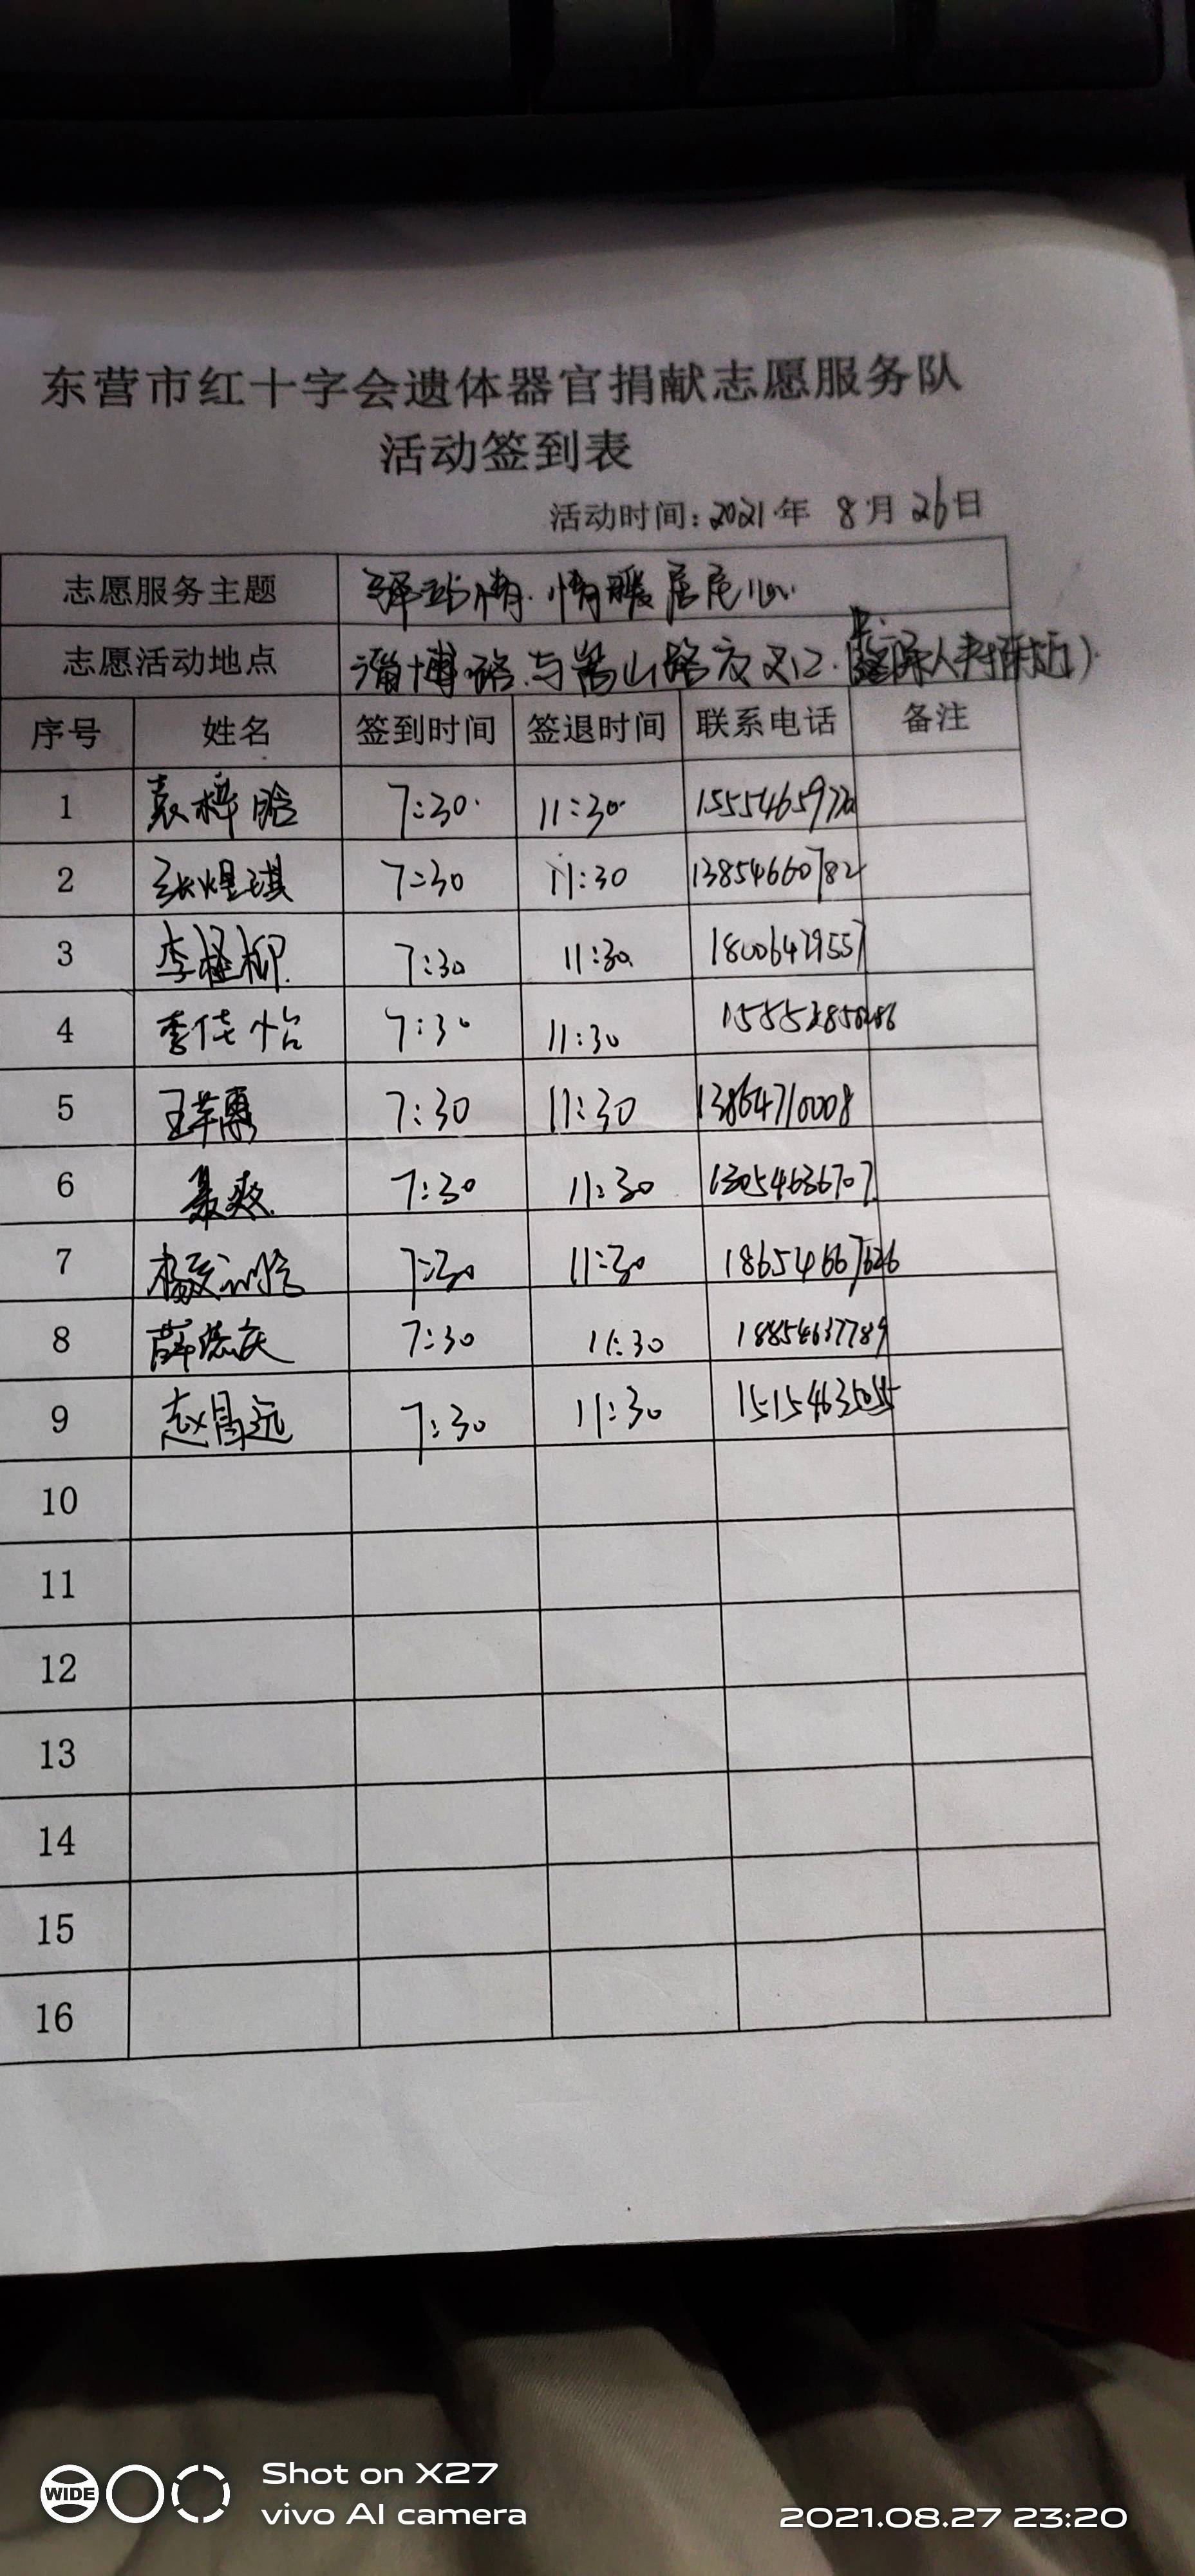 东营市红十字会遗体器官捐献志愿服务队
活动签到表
活动时间:2021年 8月26日
志愿服务主题 驿站情.情暖居民心.
志愿活动地点 淄博路.与嵩山路交叉口.
序号 姓名 签到时间 签退时间 联系电话 备注
1 袁梓晗 7:30 11:30 155546597
2 张煜琪 7:30 11:30 13854660782
3 李柳 7:30 11:30 18006429557
4 李佳怡 7:30 11:30
5 王苹惠 7:30 11:30 13864710008
6 聂爽 7:30 11:30 13054636707
7 杨 7:30 11:30 18654667626
8 薛庆 7:30 11:30 18854637789
9 赵昌远 7:30 11:30
10
11
12
13
14
15
16
WIDE
Shot on X27
vivo AI camera
2021.08.27 23:20